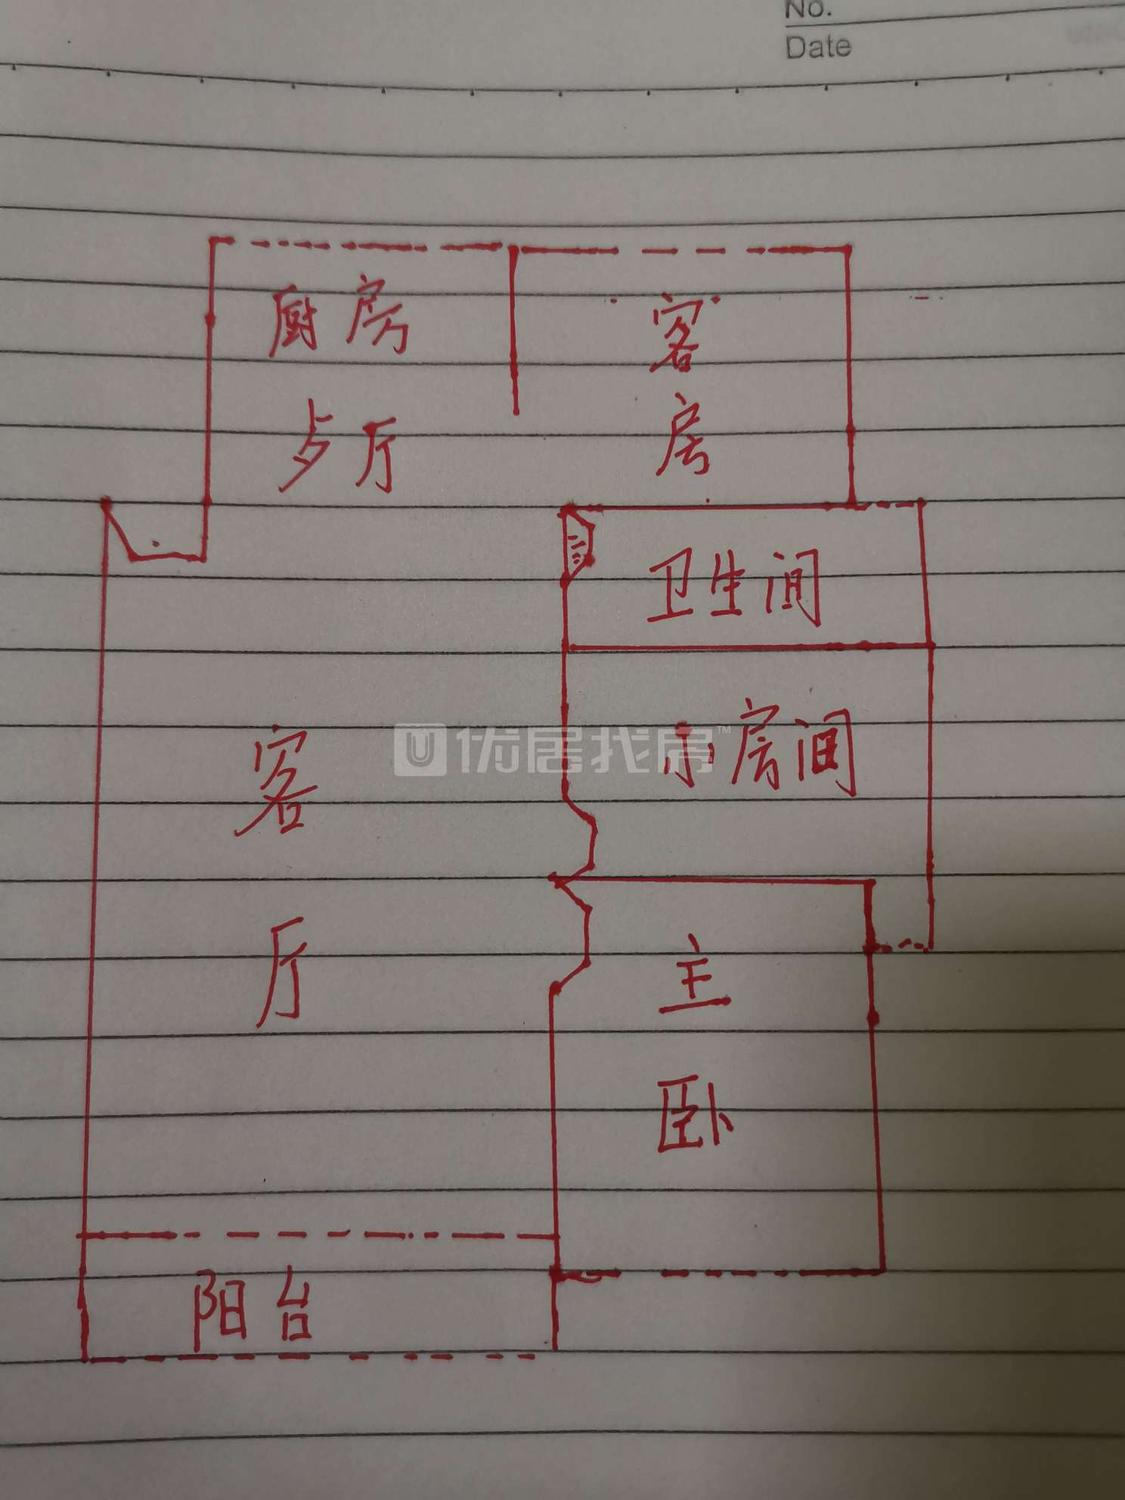 No.
Date
厨房
客房
歺厅
卫生间
小房间
客厅
主卧
阳台
优居找房™